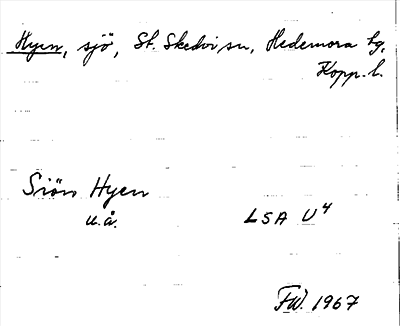 Hyen, sjö, St. Skedvi sn, Hedemora tg,
Kopp. l.
Siön Hyen
u.å. LSA U4
FW. 1967